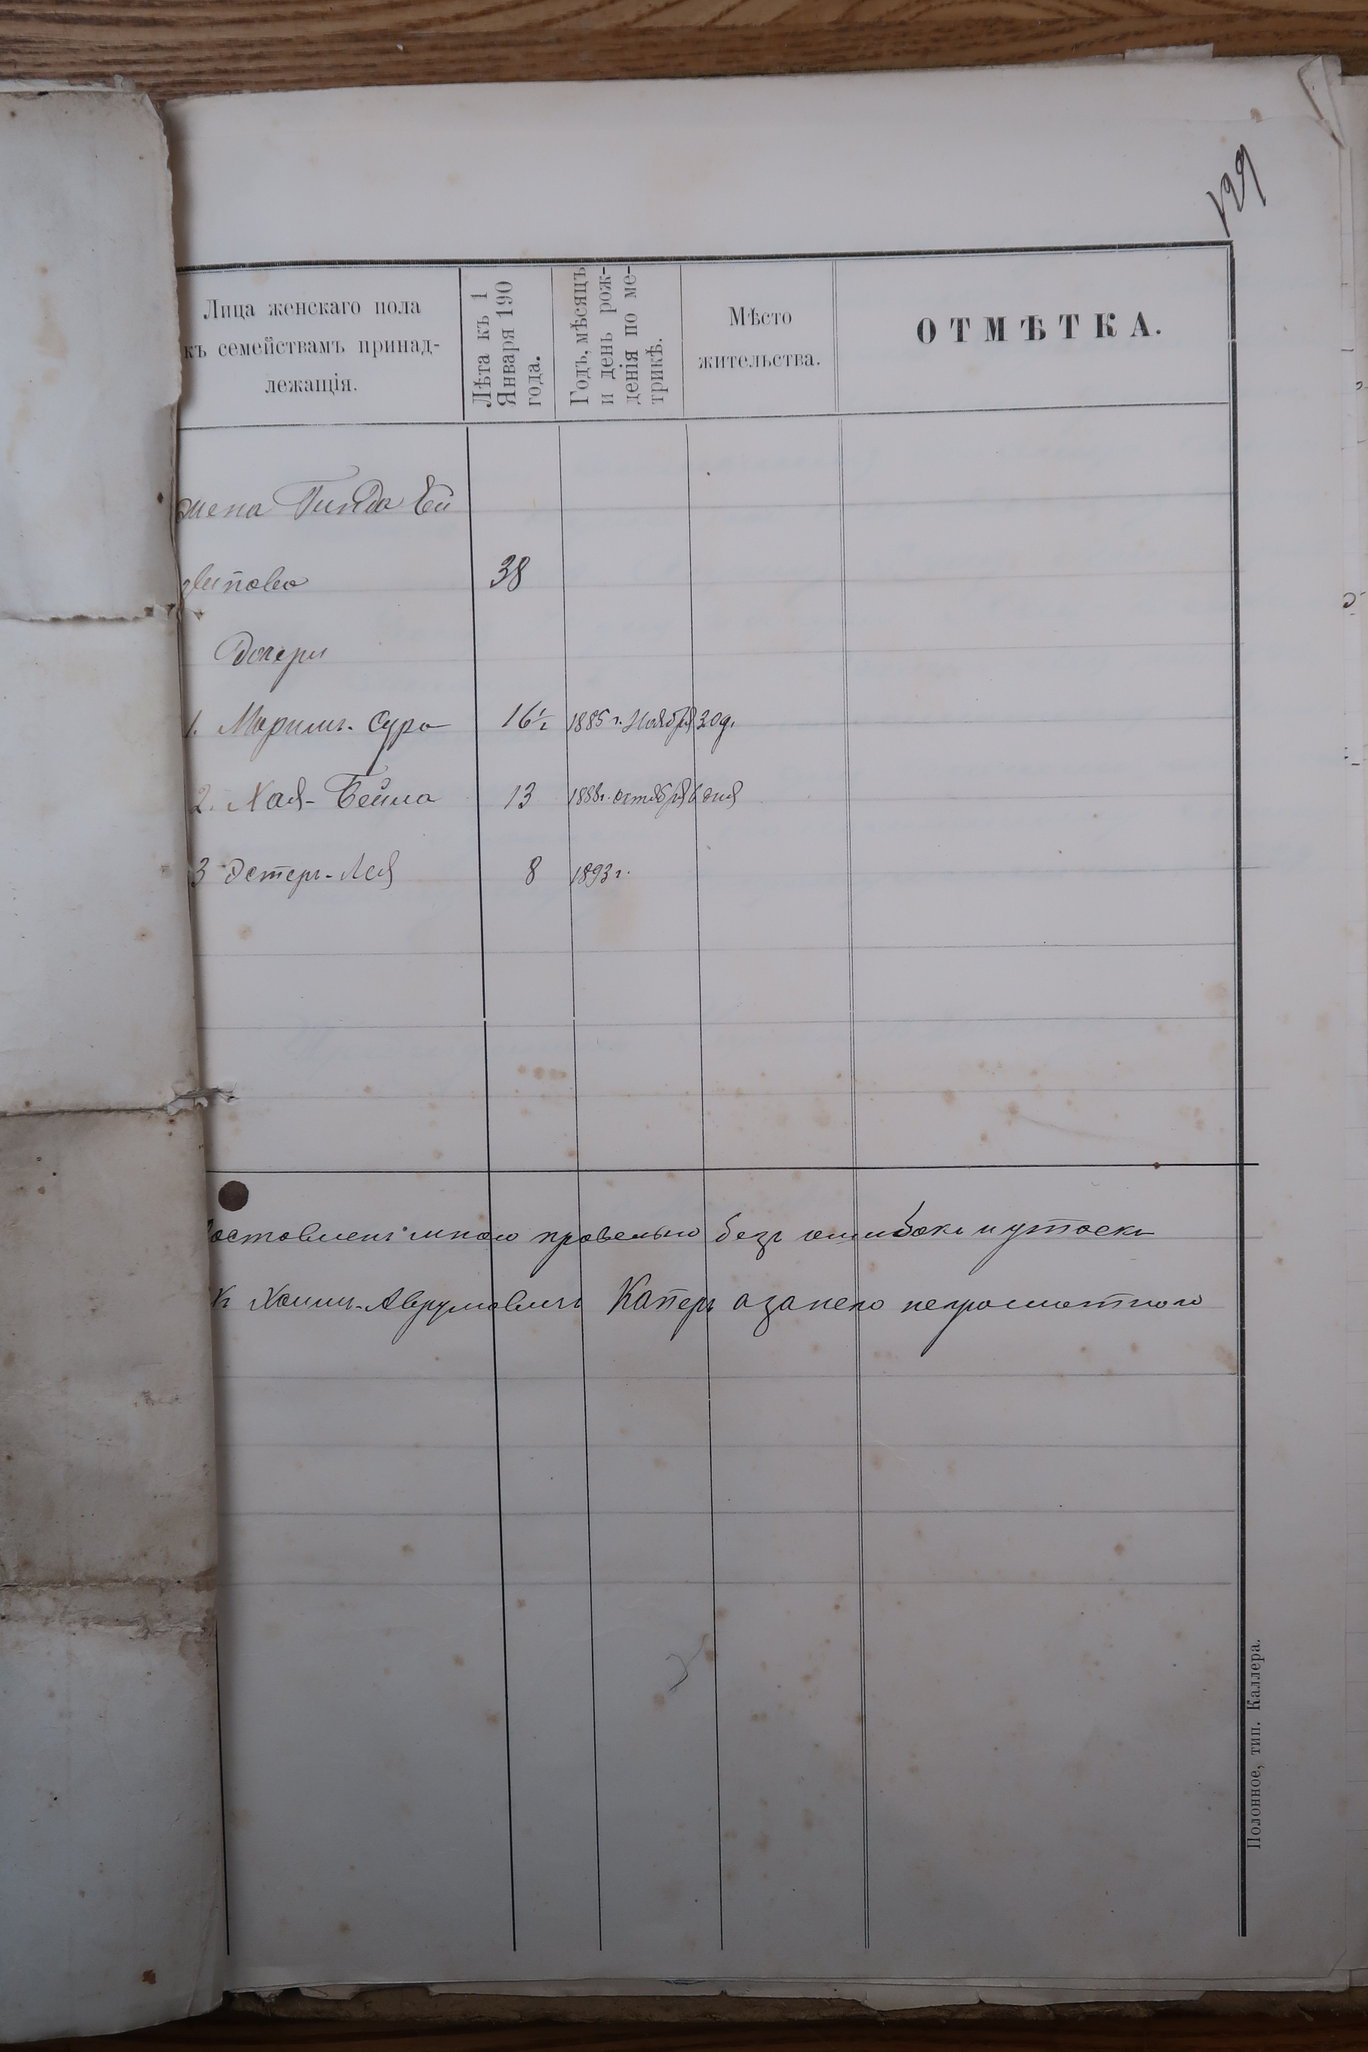 199
Лица женскаго пола
къ семействамъ принад-
лежащія.
Лѣта къ 1
Января 190
года.
Годъ, мѣсяцъ
и день рож-
денія по ме-
трикѣ.
Мѣсто
жительства.
ОТМѢТКА.
жена Гинда Ей
38
Дочери
1. Маримъ-Сура 16½ 1885 г. Ноября 20 д.
2. Хая-Бейла 13 1888 г. октября 6 дня
3 Эстеръ-Лея 8 1893 г.
составленъ мною правельно безъ ошибокъ и утаекъ
Хаимъ-Аврумовичъ Каперъ азанево неграмотного
Полонное, тип. Каллера.